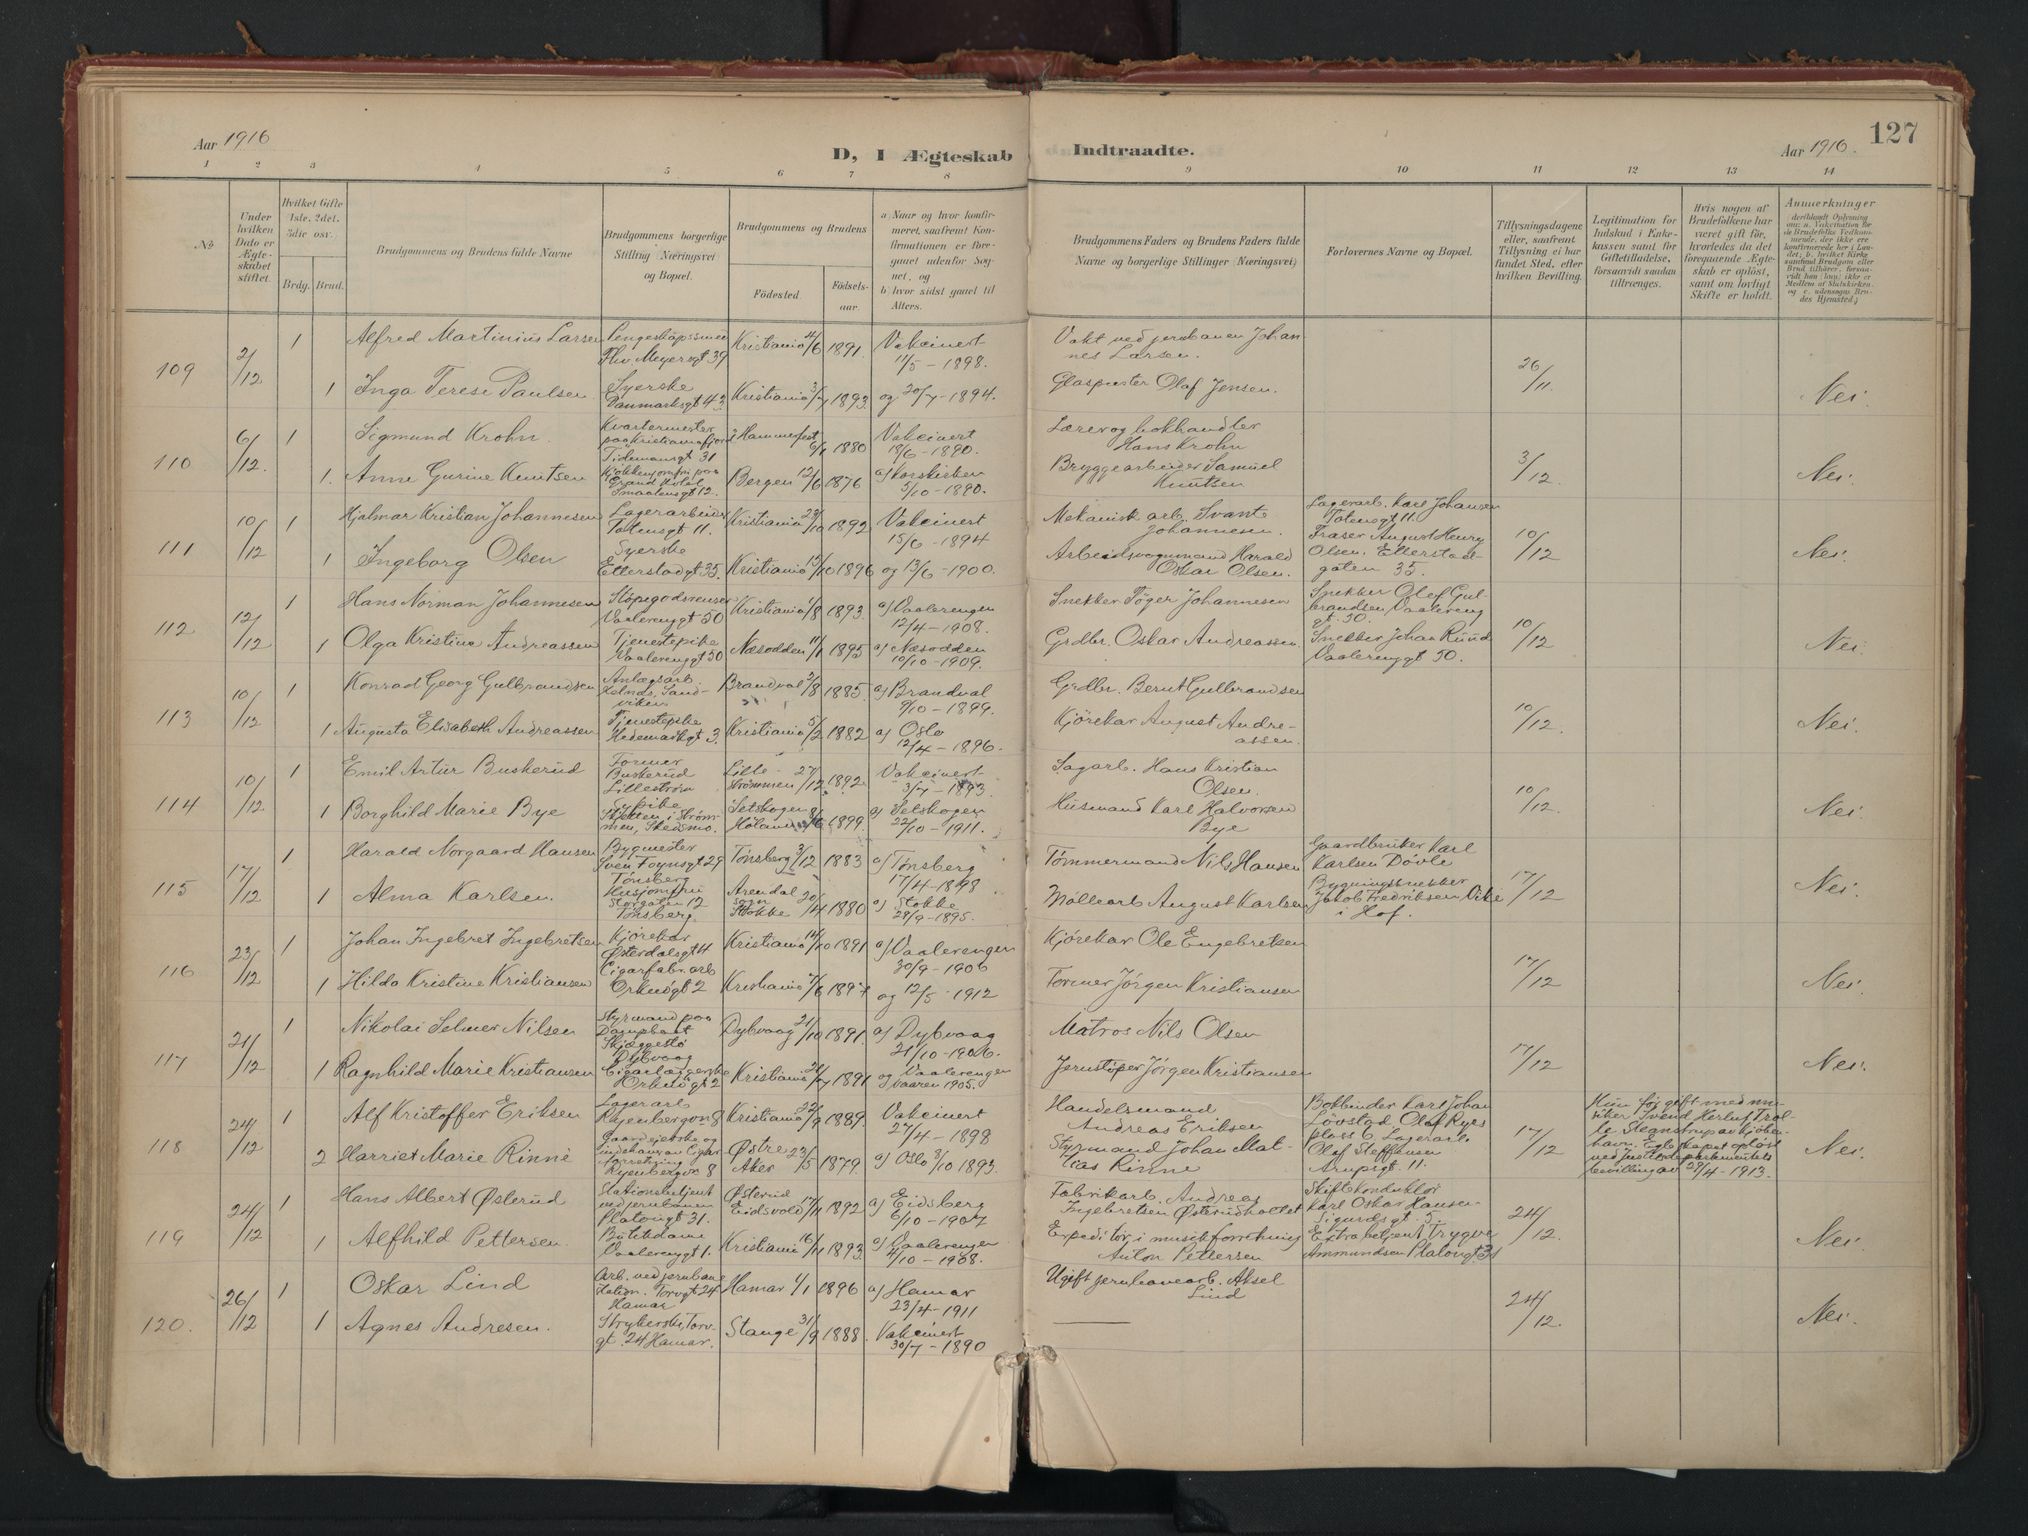 Aar 1916
D, I Ægteskab
Indtraadte.
Aar 1916.
127
1 2 3 4 5 6 7 8 9 10 11 12 13 14
No
Under hvilken Dato er Ægteskabet stiftet.
Hvilket Gifte 1ste, 2det, 3die osv.
Brdg. Brud.
Brudgommens og Brudens fulde Navne
Brudgommens borgerlige Stilling (Næringsvei) og Bopæl.
Brudgommens og Brudens
Fødested.
Fødselsaar
a) Naar og hvor konfirmeret, saafremt Konfirmationen er foregaaet udenfor Sognet, og
b) hvor sidst gaaet til Alters.
Brudgommens Faders og Brudens Faders fulde Navne og borgerlige Stillinger (Næringsvei)
Forlovernes Navne og Bopæl.
Tillysningsdagene eller, saafremt Tillysning ei har fundet Sted, efter hvilken Bevilling.
Legitimation for Indskud i Enkekassen samt for Giftetilladelse, forsaavidt saadan tiltrænges.
Hvis nogen af Brudefolkene har været gift før, hvorledes da det foregaaende Ægteskab er opløst, samt om lovligt Skifte er holdt.
Anmerkninger
109 2/12 1 Alfred Martinius Larsen Pengeskapssmed Thv. Meyersgt 39 Kristiania 4/6 1891. Vakcinert 11/5 - 1898. Vakt ved jernbanen Johannes Larsen. 26/11. Nei.
1 Inga Terese Paulsen Syerske Danmarksgt 43. Kristiania 3/7 1893. og 20/7 - 1894. Glaspuster Olaf Jensen.
110 6/12. 1 Sigmund Krohn. Kvartermester paa Kristianiafjord Tidemansgt 31 Hammerfest 6/1 1880 Vakcinert 18/6 - 1890. Lærer og bokhandler Hans Krohn 3/12. Nei.
1. Anne Gurine Knutsen Kjøkkenjomfru paa Grand Hotel Smaalensgt 12. Bergen 12/6 1876 a) Korskirken 5/10 - 1890. Bryggearbeider Samuel Knutsen
111 10/12 1 Hjalmar Kristian Johannesen Lagerarbeider Totensgt 11. Kristiania 28/10 1892 Vakcinert 15/6 - 1894 Mekanisk arb. Svant Johannesen. Lagerarb. Karl Johansen Totensgt 11. 10/12 Nei.
1 Ingeborg Olsen Syerske Etterstadgt 35. Kristiania 15/10 1896 og 13/6 - 1900. Arbeidsvognmand Harald Oskar Olsen. Fraser August Henry Olsen. Etterstadgaten 35.
112 12/12 1 Hans Norman Johannesen Støpegodsrenser Vaalerengt 50 Kristiania 1/8 1893. a) Vaalerengen 12/4 - 1908. Snekker Tøger Johannesen Snekker Olef Gulbrandsen Vaalerengt. 50. 10/12 Nei.
1 Olga Kristine Andreassen Tjenestepike Vaalerengt 50 Næsodden 11/1 1895 a) Næsodden 10/10 - 1909. Grdbr. Oskar Andreassen. Snekker Johan Ruud Vaalerengt 50.
113 10/12 1 Konrad Georg Gulbrandsen Anlægsarb. Sandviken Brandval 3/8 1885. a) Brandval 9/10 - 1899. Grdbr. Bernt Gulbrandsen 10/12. Nei.
1 Augusta Elisabeth Andreassen Tjenestepike Hedemarksgt 3. Kristiania 5/2 1882 a) Oslo 12/4 - 1896. Kjørekar August Andreassen.
114 10/12 1 Emil Artur Buskerud Former Buskerud Lillestrøm Lillestrømmen 27/12 1892. Vakcinert 3/7 - 1893. Sagarb. Hans Kristian Olsen. 10/12. Nei.
1 Borghild Marie Bye Sypike Skjetten i Strømmen, Skedsmo. Setskogen Høland 1899. a) Setskogen 22/10 - 1911. Husmand Karl Halvorsen Bye
115 17/12 1 Harald Norgaard Hansen Bygmester Sven Foynsgt 29 Tønsberg Tønsberg 3/12 1883 a) Tønsberg 17/4 - 1898 Tømmermand Nils Hansen Gaardbruker Karl Karlsen Døvle 17/12 Nei.
1 Alma Karlsen. Husjomfru Storgaten 12 Tønsberg. Arendal sogn Stokke 20/4 1880 a) Stokke 28/9 - 1895. Møllearb August Karlsen Bygningssnekker Jakob Fredriksen Vike i Hof.
116 23/12 1 Johan Ingebret Ingebretsen Kjørekar Østerdalsgt 4 Kristiania 14/10 1891 a) Vaalerengen 30/9 - 1906 Kjørekar Ole Engebretsen 17/12 Nei.
1 Hilda Kristine Kristiansen Cigarfabr. arb Orknøgt 2 Kristiania 7/6 1897 og 12/5 - 1912 Former Jørgen Kristiansen
117 21/12 1 Nikolai Selmer Nilsen Styrmand paa Dampbaat Skjæggestø Dybvaag Dybvaag 21/10 1891. a) Dybvaag 21/10 - 1906. Matros Nils Olsen 17/12 Nei.
1 Ragnhild Marie Kristiansen Orknøgt 2 Kristiania 1891 og Vaalerengen vaaren 1905. Jernstøper Jørgen Kristiansen
118 24/12 1 Alf Kristoffer Eriksen Lagerarb. Ryenbergvn 8 Kristiania 22/9 1889. Vakcinert 27/4 - 1898 Handelsmand Andreas Eriksen Bokbinder Karl Johan Løvstad Olaf Ryes plass 6. 17/12 Nei.
2 Harriet Marie Rinne Gaardeierske og indehaver av Cigarforretning Ryenbergvn 8 Østre Aker 23/5 1879. a) Oslo 8/10 1893. Styrmand Johan Mattias Rinne Lagerarb. Olaf Steffensen Arupsgt 11. Hun før gift med musiker Svend Herluf Trolle Stenstrup av Kjøbenhavn. Egteskapet opløst ved Justitsdepartementets bevilling av 29/4 - 1913.
119 24/12 1 Hans Albert Østerud Stationsbetjent ved jernbanen Platougt 31. Østerud Eidsvold 17/11 1892 a) Eidsberg 6/10 - 1907 Fabrikarb. Andreas Ingebretsen Østerudholtet Skiftekonduktør Karl Oskar Hansen Sigurdsgt. 5. 24/12. Nei.
1 Alfhild Pettersen. Butikdame Vaalerengt 1. Kristiania 16/11 1893. a) Vaalerengen 4/10 - 1908. Expeditør i musikforretning Anton Pettersen Extrabetjent Trygve Ammundsen Platougt 31
120. 26/12 1 Oskar Lind Arb. ved jernbanestation. Torvgt 24 Hamar Hamar 1/1 1896 a) Hamar 23/4 - 1911 Ugift jernbanearb. Aksel Lind 24/12. Nei.
1 Agnes Andresen. Strykerske, Torvgt. 24 Hamar. Stange 31/9 1888. Vakcinert 30/7 - 1890